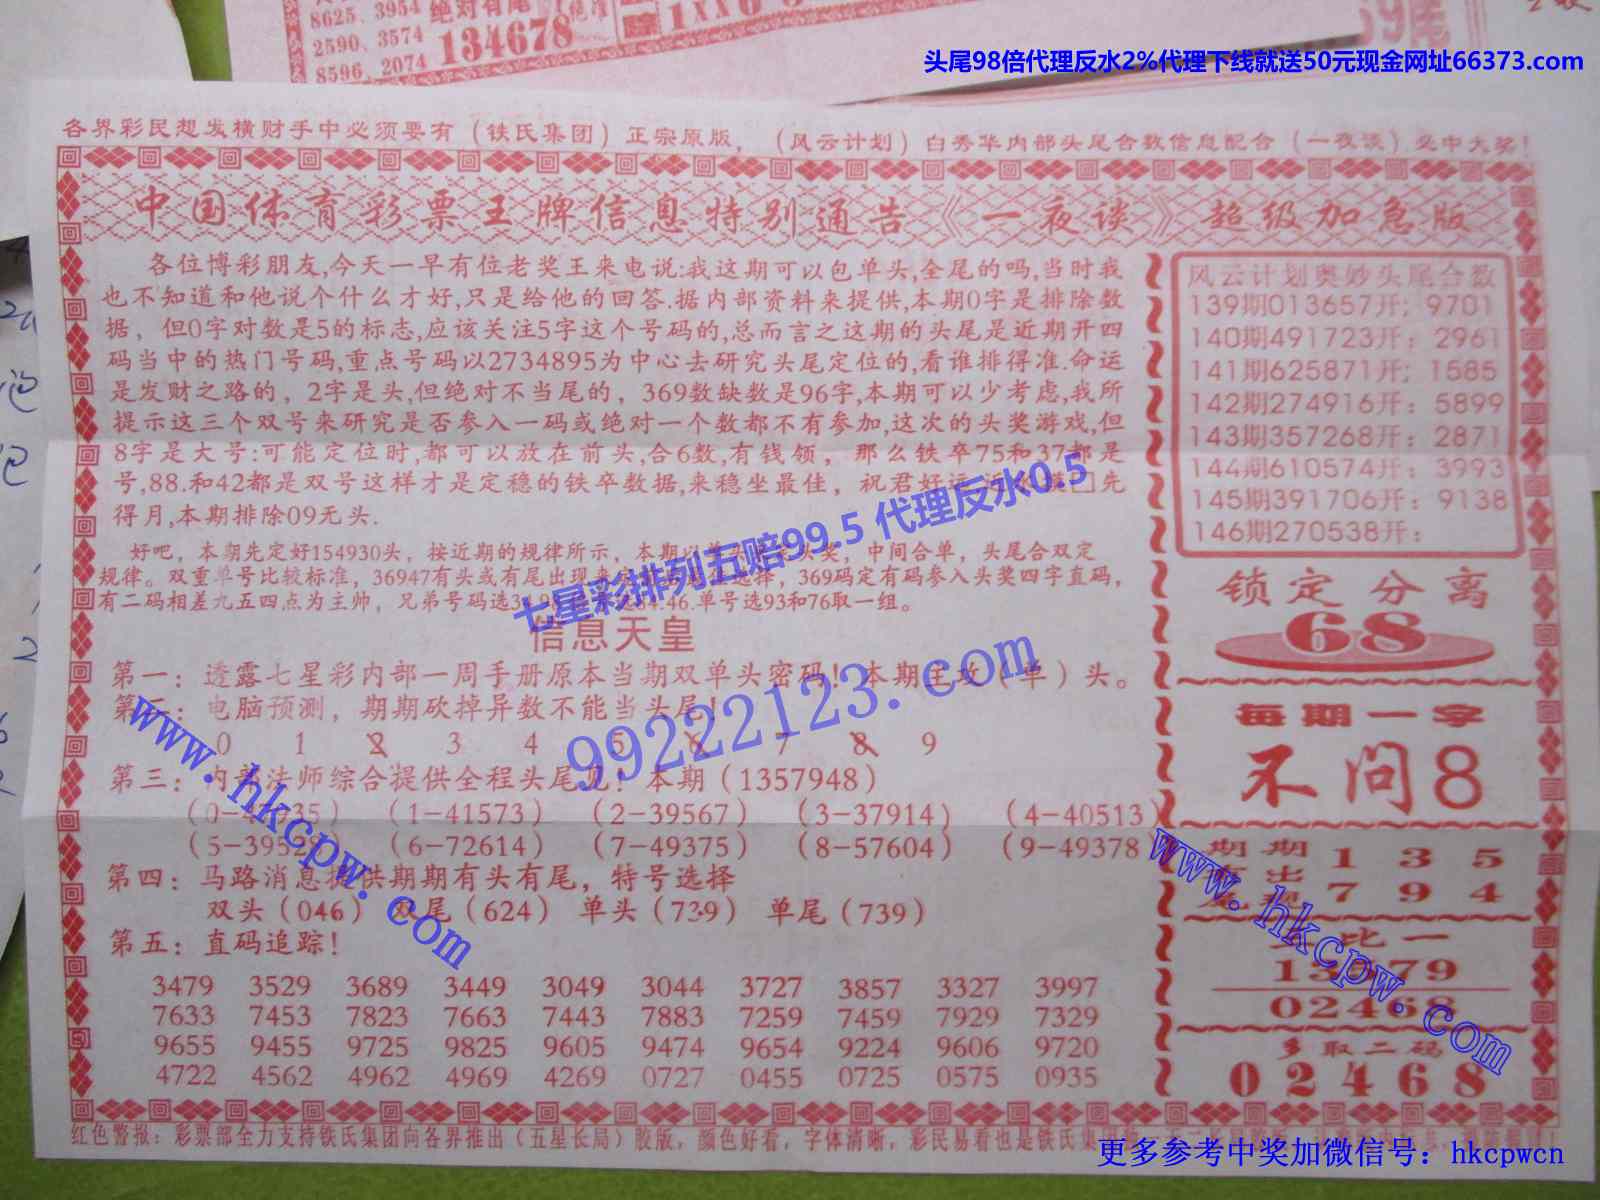 8625、3954 绝对有尾
2590、3574 134678
8596、2074
头尾98倍代理反水2%代理下线就送50元现金网址66373.com
各界彩民想发横财手中必须要有（铁氏集团）正宗原版，（风云计划）白秀华内部头尾合数信息配合（一夜谈）必中大奖！
中国体育彩票王牌信息特别通告《一夜谈》超级加急版
各位博彩朋友,今天一早有位老奖王来电说:我这期可以包单头,全尾的吗,当时我
也不知道和他说个什么才好,只是给他的回答.据内部资料来提供,本期0字是排除数
据，但0字对数是5的标志,应该关注5字这个号码的,总而言之这期的头尾是近期开四
码当中的热门号码,重点号码以2734895为中心去研究头尾定位的,看谁排得准.命运
是发财之路的，2字是头,但绝对不当尾的，369数缺数是96字,本期可以少考虑,我所
提示这三个双号来研究是否参入一码或绝对一个数都不有参加,这次的头奖游戏,但
8字是大号:可能定位时,都可以放在前头,合6数,有钱领，那么铁卒75和37都是
号,88.和42都是双号这样才是定稳的铁卒数据,来稳坐最佳，祝君好运 先
得月,本期排除09无头.
好吧，本期先定好154930头，按近期的规律所示，本期以单头 头奖，中间合单，头尾合双定
规律。双重单号比较标准，36947有头或有尾出现来 选择，369码定有码参入头奖四字直码，
有二码相差九五四点为主帅，兄弟号码选34.98 34.46.单号选93和76取一组。
七星彩排列五赔99.5 代理反水0.5
信息天皇
第一：透露七星彩内部一周手册原本当期双单头密码！本期主攻（单）头。
第二：电脑预测，期期砍掉异数不能当头尾.
0 1 2 3 4 5 6 7 8 9
99222123.com
第三：内部法师综合提供全程头尾见！本期（1357948）
（1-41573）（2-39567）（3-37914）（4-40513）
（6-72614）（7-49375）（8-57604）（9-49378
第四：马路消息提供期期有头有尾，特号选择
双头（046）双尾（624）单头（739）单尾（739）
第五：直码追踪！
3479 3529 3689 3449 3049 3044 3727 3857 3327 3997
7633 7453 7823 7663 7443 7883 7259 7459 7929 7329
9655 9455 9725 9825 9605 9474 9654 9224 9606 9720
4722 4562 4962 4969 4269 0727 0455 0725 0575 0935
www.hkcpw.com
风云计划奥妙头尾合数
139期013657开; 9701
140期491723开：2961
141期625871开; 1585
142期274916开：5899
143期357268开：2871
144期610574开：3993
145期391706开：9138
146期270538开：
锁定分离
68
每期一字
不问8
期期 1 3 5
7 9 4
比一
13579
02468
多取二码
02468
www.hkcpw.com
红色警报：彩票部全力支持铁氏集团向各界推出（五星长局）胶版，颜色好看，字体清晰，彩民易看也是铁氏集团
更多参考中奖加微信号：hkcpwcn